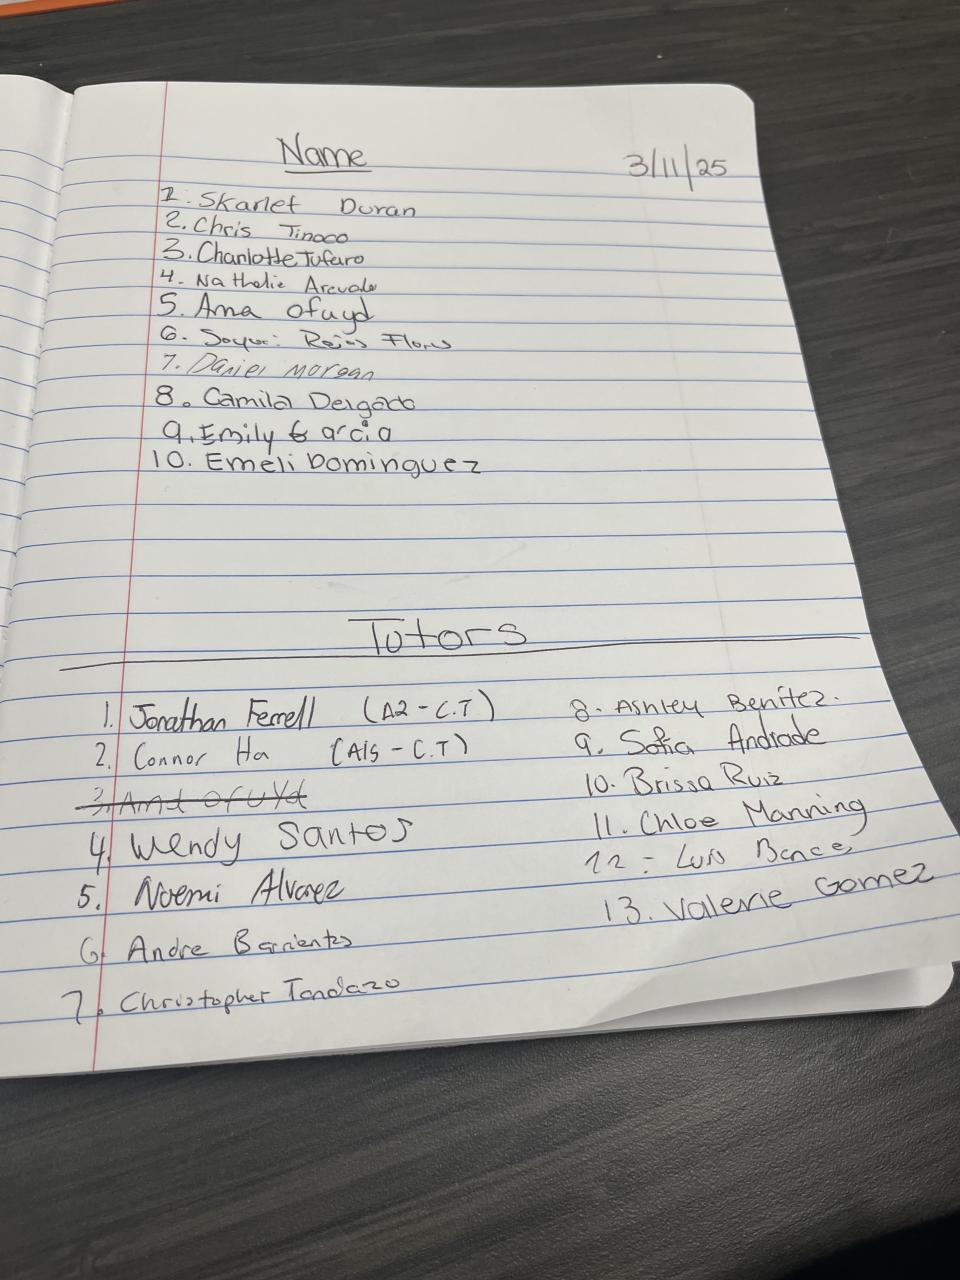 Name
3/11/25
1. Skarlet Duran
2. Chris Tinoco
3. Charlotte Tufaro
4. Nathalie Arevalo
5. Ama Ofuyd
6. Rojas Flores
7. Daniel Morgan
8. Camila Delgado
9. Emily Garcia
10. Emeli Dominguez
Tutors
1. Jonathan Ferrell (A2 - C.T)
2. Connor Ha (A15 - C.T)
3. Ama Ofuyd
4. Wendy Santos
5. Noemi Alvarez
6. Andre Barrientos
7. Christopher Tandazo
8. Ashley Benítez.
9. Sofia Andrade
10. Brissa Ruiz
11. Chloe Manning
12 - Luis
13. Valerie Gomez